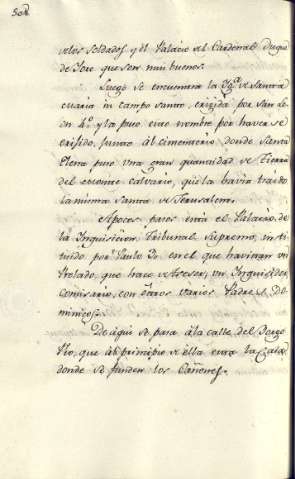 de los Soldados y el Palacio del Cardenal Duque
de Jorc que son mui buenos.
Luego se encuentra la Ygª de Santa
Maria in campo santo, erigida por San Le
on 4º y la puso este nombre por haverse
erigido, junto âl cimenterio donde Santa
Elena puso una gran quantidad de tierra
del monte calvario, qe la havia traido
la misma Santa de Jerusalem.
Apocos pasos está el Palacio de
la Inquisicion Tribunal Supremo, insti
tuido por Paulo 3º en el que havitan un
Prelado, que hace de Asesor, un Inquisidor,
Comisario, con otros varios Padres Do
minicos.
De aqui se pasa â la calle del Borgo
Pio, que âl principio de ella esta la Casa
donde se funden los Cañones.